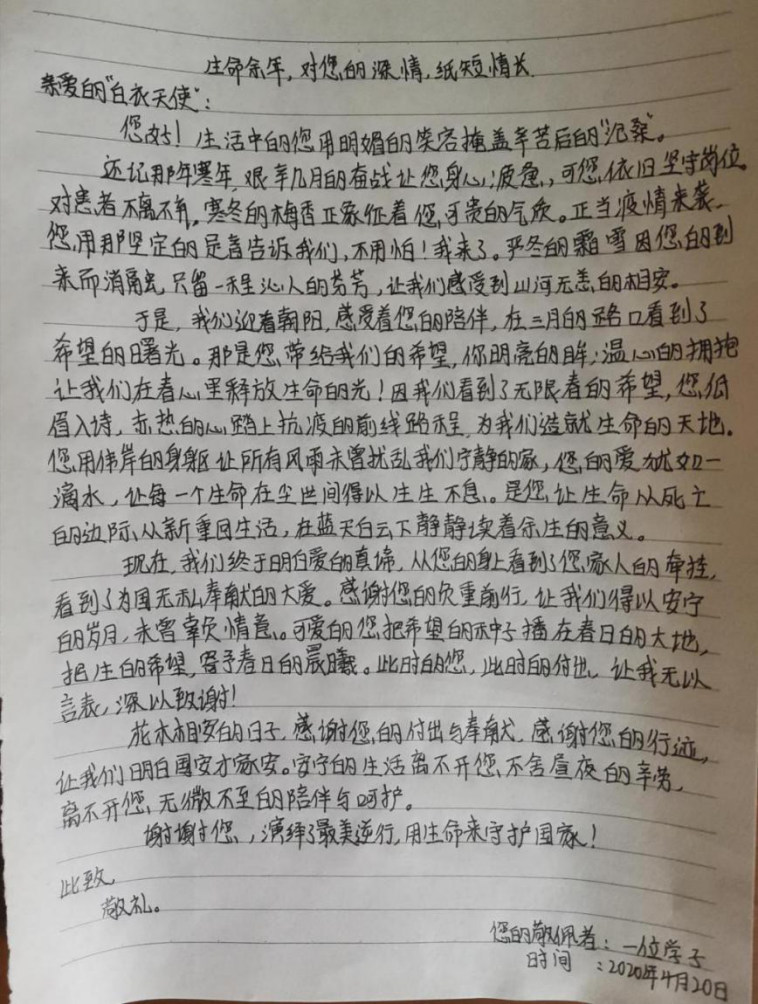 生命余年,对您的深情,纸短情长.
亲爱的"白衣天使":
您好!生活中的您用明媚的笑容掩盖辛苦后的"沧桑"。
还记那年寒年,艰辛几月的奋战让您身心疲惫,可您依旧坚守岗位。
对患者不离不弃。寒冬的梅香正象征着您可贵的气质。正当疫情来袭。
您用那坚定的足音告诉我们,不用怕!我来了。严冬的霜雪因您的到
来而消融,只留一程沁人的芬芳,让我们感受到山河无恙的相安。
于是,我们迎着朝阳,感受着您的陪伴,在三月的路口看到了
希望的曙光。那是您带给我们的希望,你明亮的眸;温心的拥抱
让我们在春心里释放生命的光!因我们看到了无限春的希望,您低
眉入诗,赤热的心踏上抗疫的前线路程,为我们造就生命的天地.
您用伟岸的身躯让所有风雨未曾扰乱我们宁静的家,您的爱犹如一
滴水,让每一个生命在尘世间得以生生不息。是您让生命从死亡
的边际,从新重回生活,在蓝天白云下静静读着余生的意义。
现在,我们终于明白爱的真谛,从您的身上看到了您家人的牵挂,
看到了为国无私奉献的大爱。感谢您的负重前行,让我们得以安宁
的岁月,未曾辜负情意。可爱的您把希望的种子播在春日的大地,
把生的希望,寄予春日的晨曦。此时的您,此时的付出,让我无以
言表,深以致谢!
花木相安的日子,感谢您的付出与奉献,感谢您的行迹,
让我们明白国安才家安。安宁的生活离不开您不舍昼夜的辛劳,
离不开您无微不至的陪伴与呵护。
谢谢您,演绎了最美逆行,用生命来守护国家!
此致
敬礼。
您的敬佩者:一位学子
时间:2020年4月20日